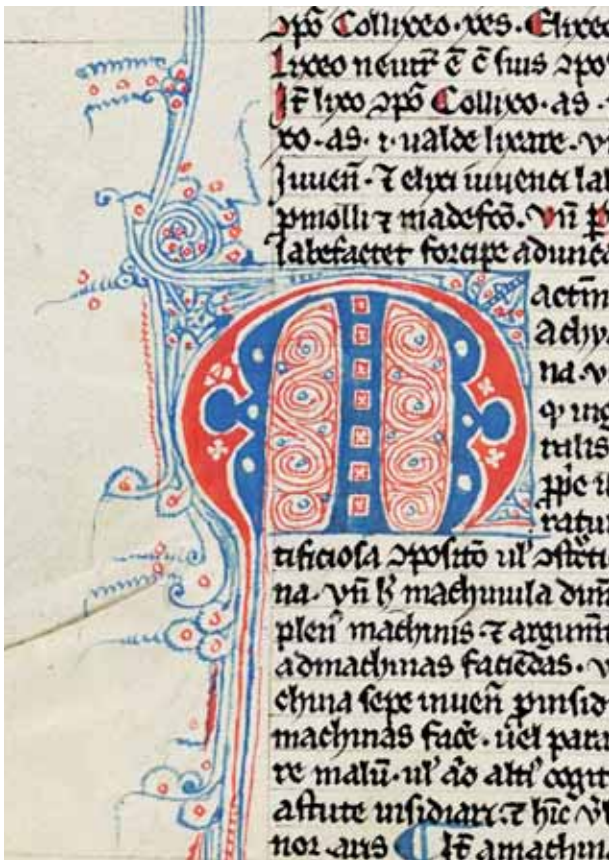 ꝯpo᷑ Collixeo · xes · Elixeo
Lixeo neutr̄ ē ċ ſuis ꝯpo
It̄ lixo ꝯpo᷑ Collixo · as ·
xo · as · i · ualde lixare · v
Juuen̄ · ⁊ elixi iuuenci la
ꝑmolli ⁊ madefco᷑ · Vn̄ ꝑ
labefactet forcipe adunca
M
actin
achi
na · v
ꝙ ing
tilis
ꝓpie
ratu
tificioſa ꝯpoſito᷑ ul̕
na · vn̄ h̄ machinula dim̄
plen̄ machinis · ⁊ argum̄
ad machinas faciēdas · v
china ſepe inuen̄ ꝑ inſid
machinas face᷑ · uel para
re malū · ul̕ ad alti᷑ cogit
aſtute inſidiari · ⁊ hic
nor · aris It̄ amachin